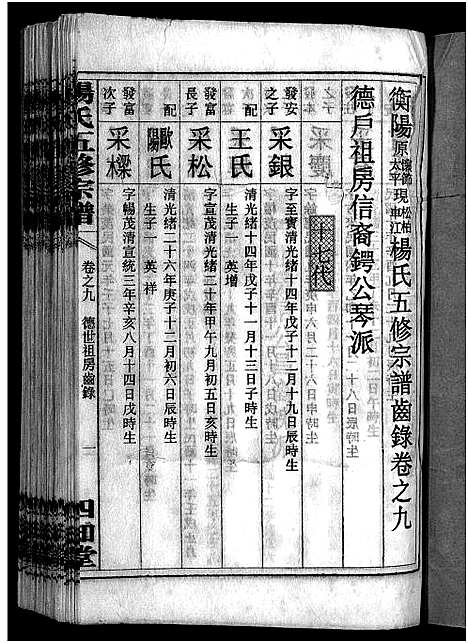 衡陽原太平墩錦現車江松柏楊氏五修宗譜齒錄卷之九
德戶祖房信裔鍔公琴派
十七代
發安之子 采銀 字至賓清光緒十四年戊子十二月十九日辰時生
配 王氏 清光緒十四年戊子十一月十三日子時生
生子一 英增
發富長子 采松 字宣茂清光緒二十年甲午九月初五日亥時生
配 歐陽氏 清光緒二十六年庚子十二月初六日辰時生
生子一 英祥
發富次子 采樑 字暢茂清宣統三年辛亥八月十四日戌時生
楊氏五修宗譜
卷之九 德世祖房齒錄
一
四知堂